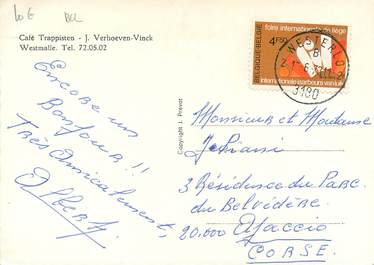 LOE BEL
Café Trappisten - J. Verhoeven-Vinck
Westmalle. Tel. 72.05.02
foire internationale de liège
4F50
BELGIQUE-BELGIE
internationale jaarbeurs van luik
WESTERLO
3180
Encore un
Bonjour !!
Très Amicalement,
Albert
Copyright J. Prevot
Monsieur et Madame
3 Résidence du Parc
du Belvédère
20.000 Ajaccio
CORSE.